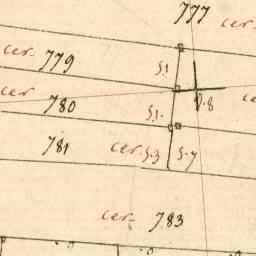 777
cer.
cer. 779
5.1
cer
780
8.8
5.1.
781
cer. 5.3 5.7
cer. 783